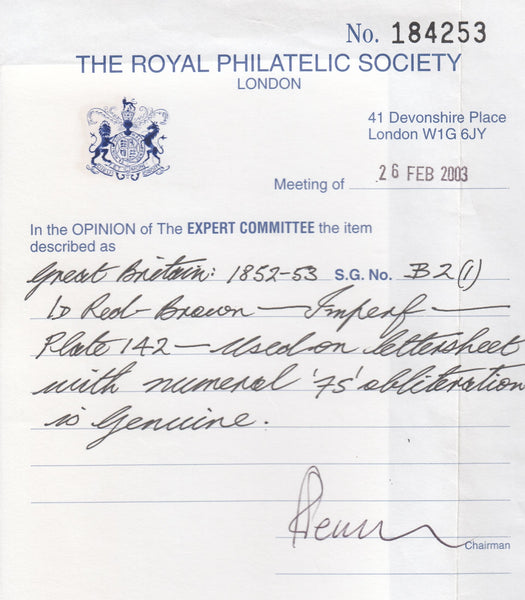 No. 184253
THE ROYAL PHILATELIC SOCIETY
LONDON
41 Devonshire Place
London W1G 6JY
Meeting of 26 FEB 2003
In the OPINION of The EXPERT COMMITTEE the item
described as
Great Britain: 1852-53 S.G. No. B2(1)
1D Red-Brown — Imperf —
Plate 142 — Used on lettersheet
with numeral '75' obliteration
is Genuine.
Chairman